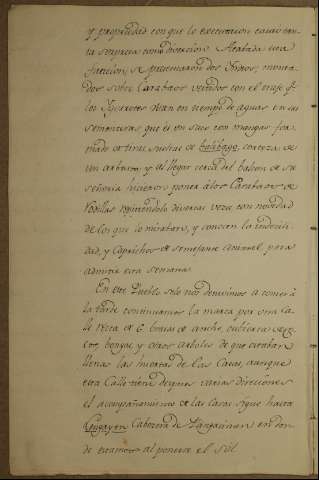 y propriedad con que lo executaron causó tan
ta sorpresa como diversion. Acabada esta
funcion, se presentaron dos Indios, monta
dos sobre Carabaos vestidos con el traje q.
los Ygorrotes usan en tiempo de aguas en sus
sementeras que es un saco con mangas for
mado de tiras sueltas de balibago, corteza de
un arbusto; y al llegar cerca del balcon de su
señoria hicieron poner á los Carabaos de
rodillas repitiendolo diversas veces con novedad
de los que lo miraban, y conocen la indocili
dad, y caprichos de semejante animal para
admitir esta enseñanza.
En este Pueblo solo nos detuvimos a comer á
la tarde continuamos la marcha por una ca
lle recta de 6 brazas de ancho, cubierta de
cocos, bongas, y otros arboles de que estaban
llenas las huertas de las Casas, aunque
esta Calle tiene despues varias direcciones
el acompañamiento de las casas sigue hasta
Lingayen Cabecera de Pangasinan en don
de entramos al ponerse el Sol.